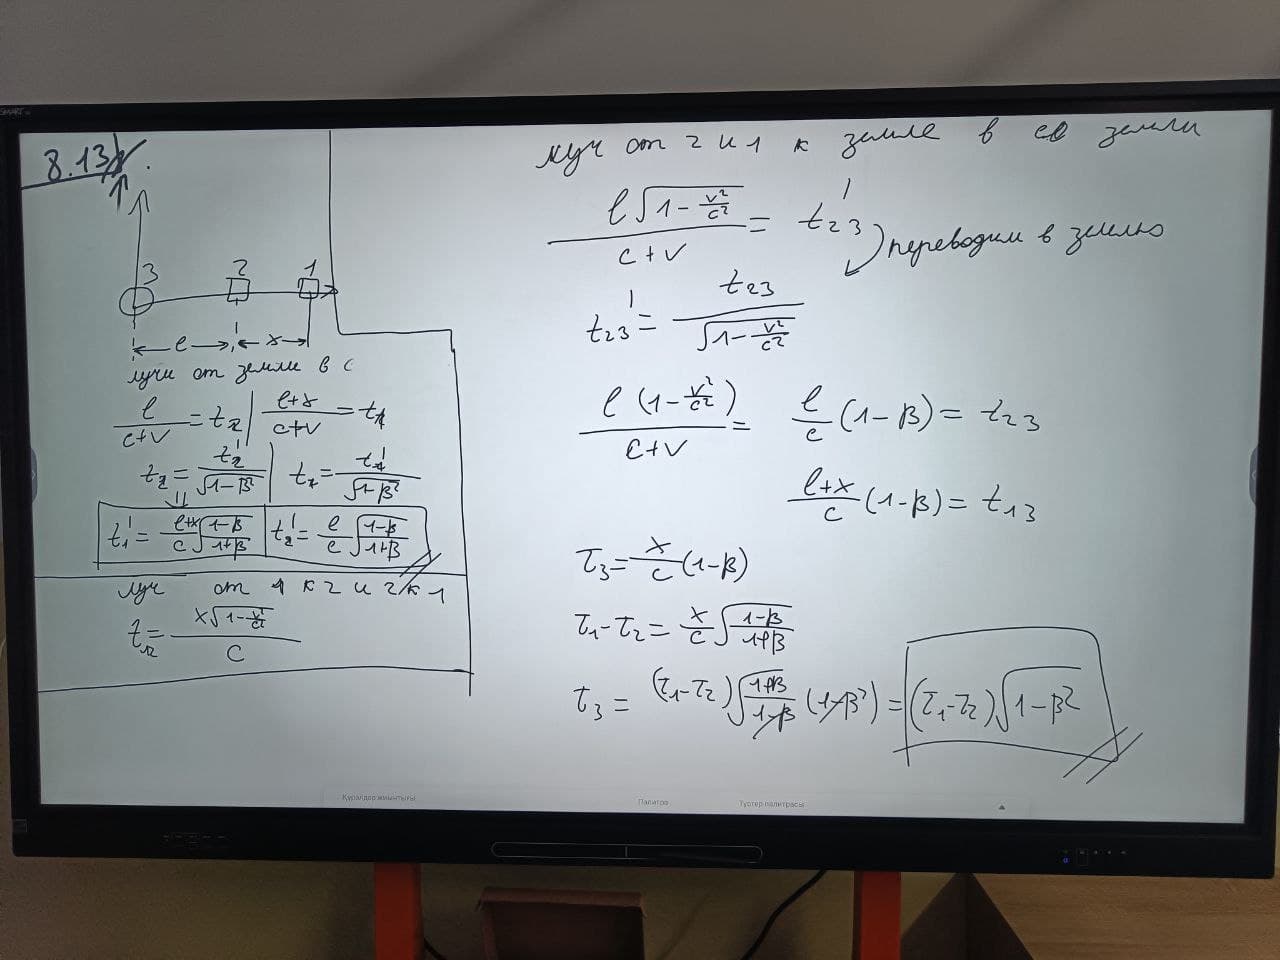 SMART
8.13
3 2 1
l x
лучи от земли в с
l/(c+v) = t₂ | (l+x)/(c+v) = t₁
t₂ = t₂'/√(1-β²) | t₁ = t₁'/√(1-β²)
⇓
t₁' = (l+x)/c √((1-β)/(1+β)) | t₂' = l/c √((1-β)/(1+β))
луч от 1 к 2 и 2 к 1
t₁₂ = x√(1-v²/c²)/c
луч от 2 и 1 к земле в со земли
l√(1-v²/c²)/(c+v) = t₂₃'
переводим в землю
t₂₃' = t₂₃/√(1-v²/c²)
l(1-v²/c²)/(c+v) = l/c (1-β) = t₂₃
(l+x)/c (1-β) = t₁₃
τ₃ = x/c (1-β)
τ₁-τ₂ = x/c √((1-β)/(1+β))
τ₃ = (τ₁-τ₂)√((1+β)/(1-β)) (1-β²) = (τ₁-τ₂)√(1-β²)
Құралдар жиынтығы
Палитра
Түстер палитрасы